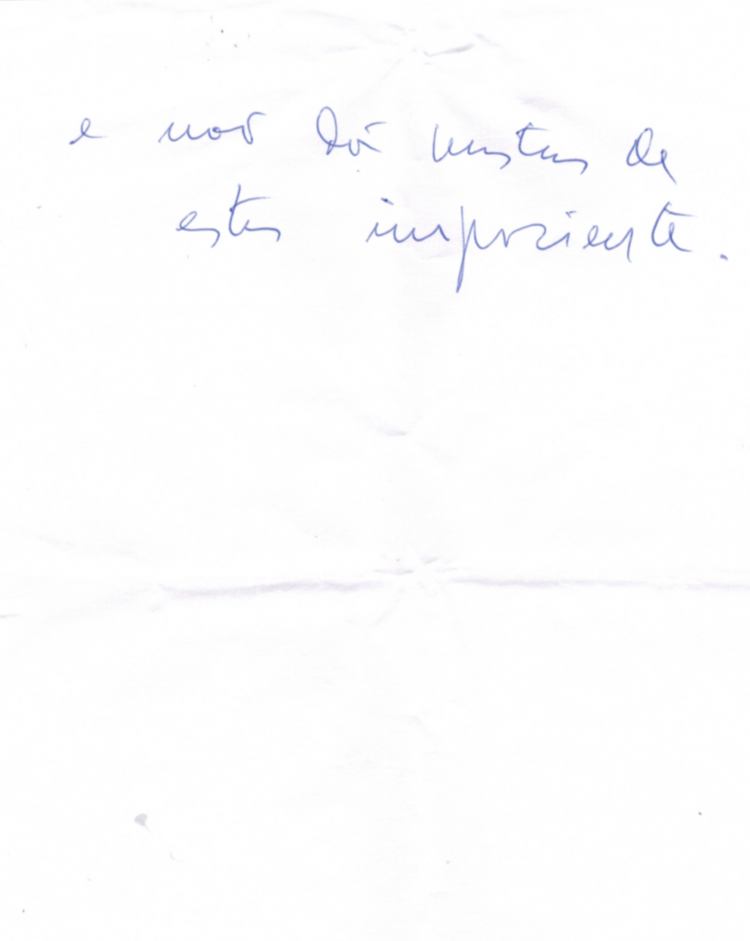 e non dá mostras de
estar impaciente.